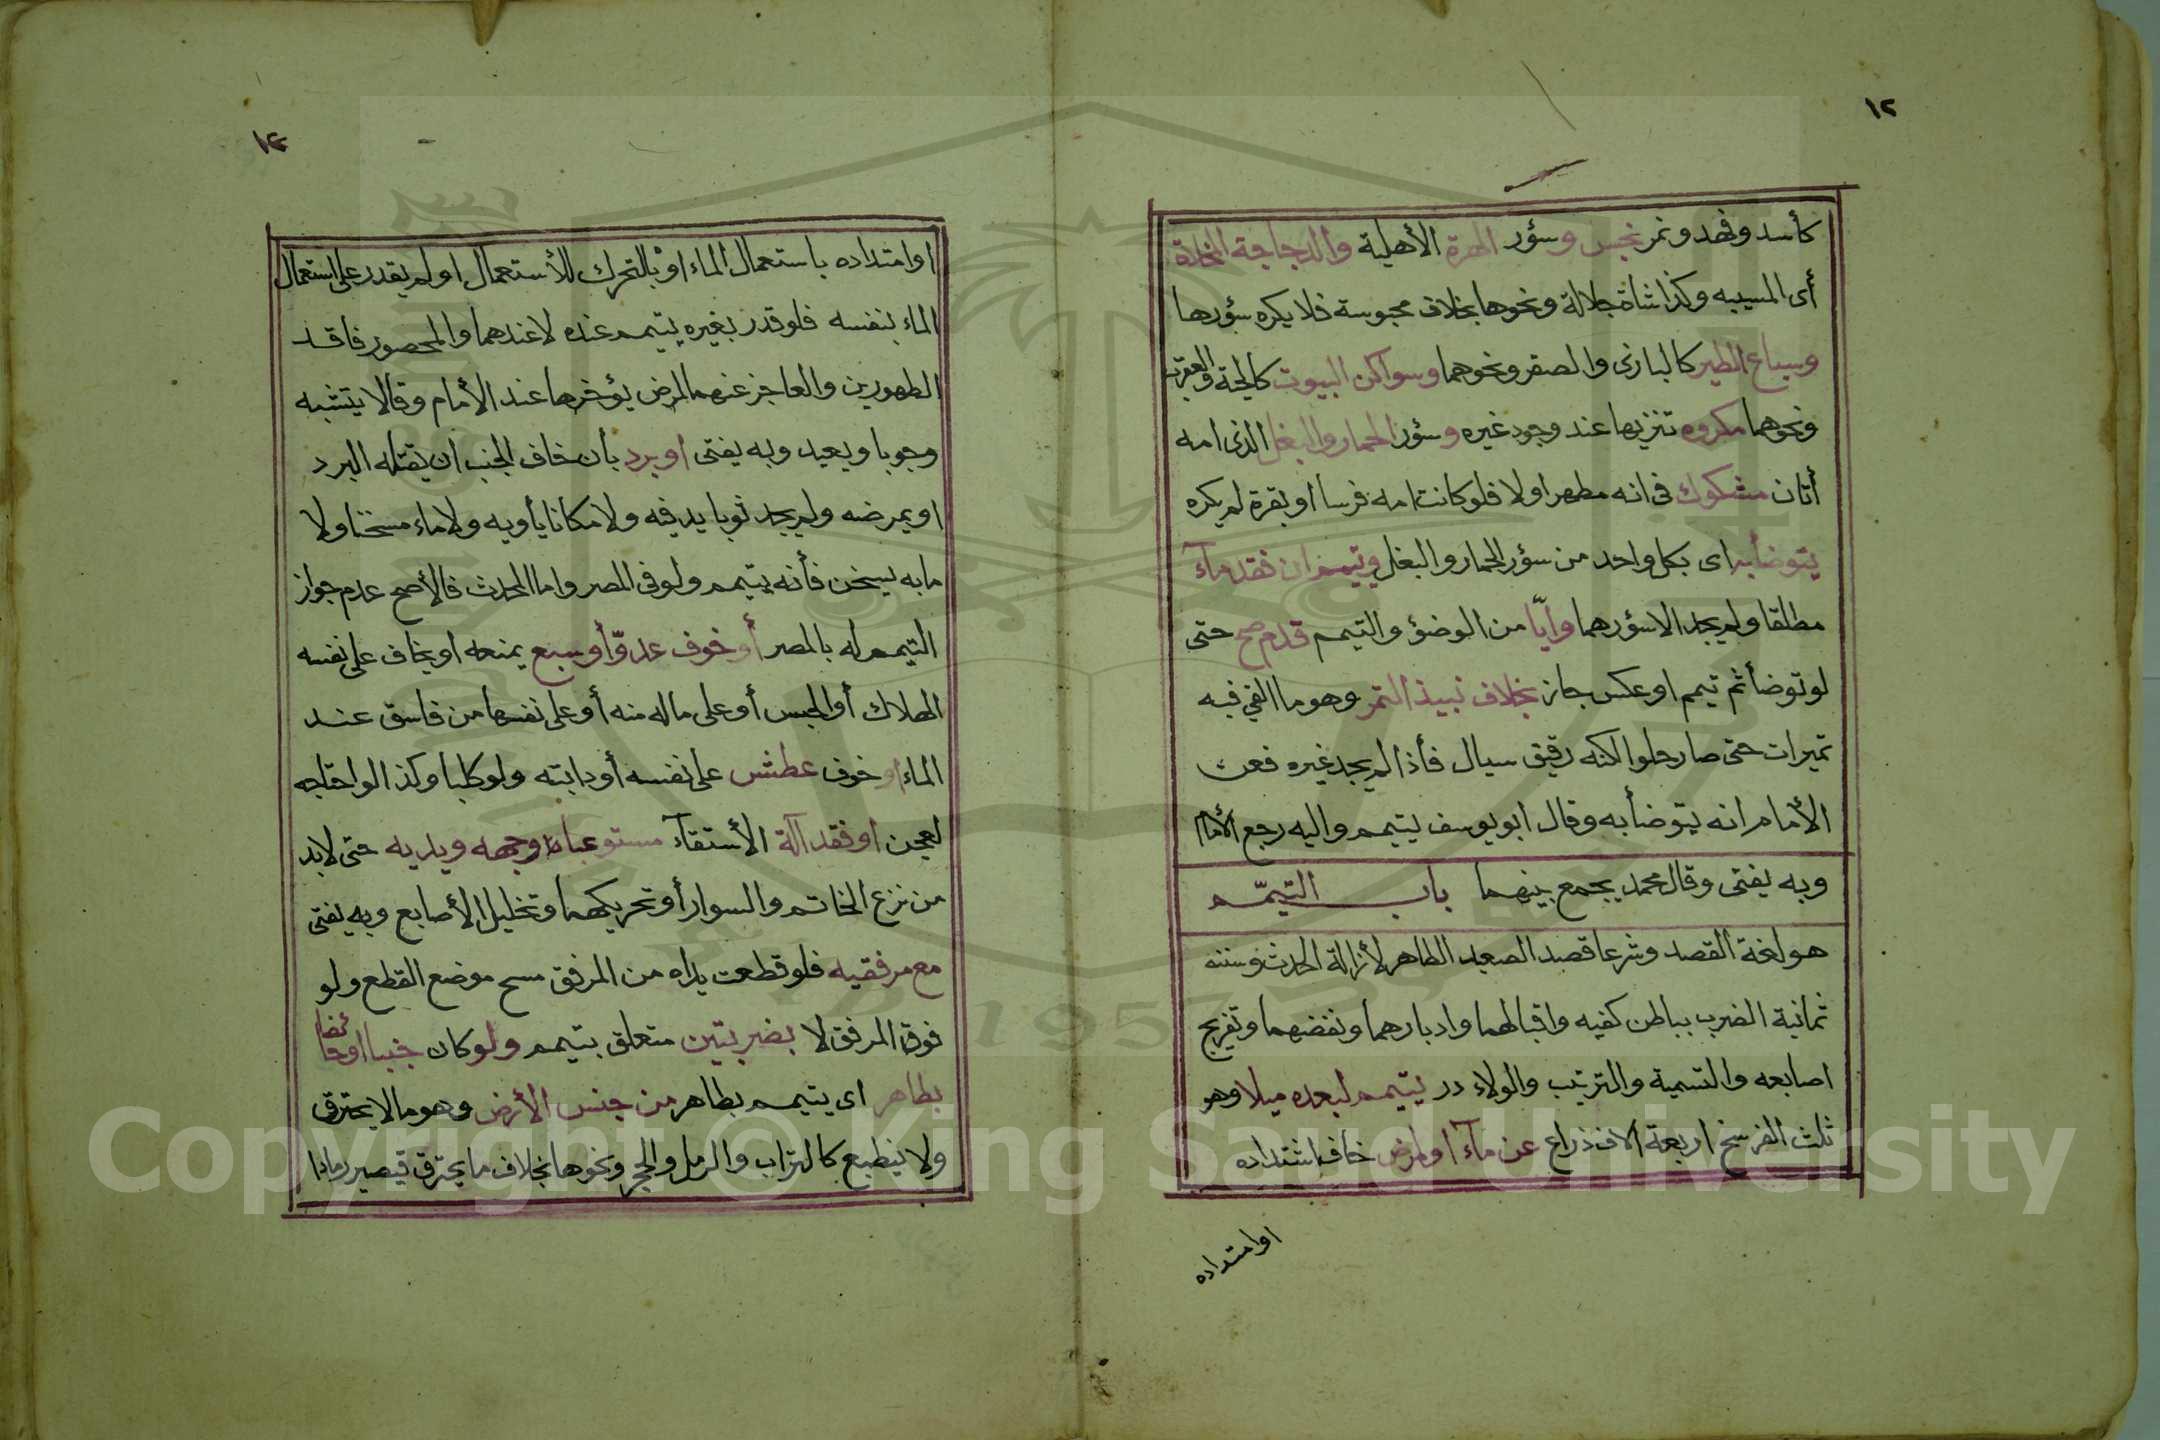 ١٢
كأسد وفهد ونمر نجس وسؤر الهرة الأهلية والدجاجة المخلاة
أى المسيبه وكذا شاة جلالة ونحوها بخلاف محبوسة فلا يكره سؤرها
وسباع الطير كالبازى والصقر ونحوهما وسواكن البيوت كالحية والعقرب
ونحوهما مكروه تنزيها عند وجود غيره وسؤر الحمار والبغل الذى امه
أتان مشكوك فى انه مطهر اولا فلو كانت امه فرسا أو بقرة لم يكره
يتوضأ به اى بكل واحد من سؤر الحمار والبغل ويتيمم ان فقد مآء
مطلقا ولم يجد الا سؤرهما وايّا من الوضؤ والتيمم قدم صح حتى
لو توضأ ثم تيمم او عكس جاز بخلاف نبيذ التمر وهو ما القي فيه
تميرات حتى صار حلوا لكنه رقيق سيال فأذا لم يجد غيره فعن
الأمام انه يتوضأ به وقال ابو يوسف يتيمم واليه رجع الأمام
وبه يفتى وقال محمد يجمع بينهما باب التيمّم
هو لغة القصد وشرعا قصد الصعيد الطاهر لأزالة الحدث وسننه
ثمانية الضرب بباطن كفيه واقبالهما وادبارهما ونفضهما وتفريج
اصابعه والتسمية والترتيب والولاء در يتيمم لبعده ميلا وهو
ثلث الفرسخ اربعة آلاف ذراع عن مآء او لمرض خاف اشتداده
اوامتداده
١٤
اوامتداده باستعمال الماء او بالتحرك للأستعمال او لم يقدر على استعمال
الماء بنفسه فلو قدر بغيره يتيمم عنده لا عندهما والمحصور فاقد
الطهورين والعاجز عنهما لمرض يؤخرها عند الأمام وقالا يتشبه
وجوبا ويعيد وبه يفتى او برد بأن خاف الجنب ان يقتله البرد
او يمرضه ولم يجد ثوبا يدفيه ولا مكانا يأويه ولا ماء مسخنا ولا
ما به يسخن فأنه يتيمم ولو فى المصر واما المحدث فالأصح عدم جواز
التيمم له بالمصر أو خوف عدوّ أو سبع يمنعه او يخاف على نفسه
الهلاك أو الحبس أو على ماله منه أو على نفسها من فاسق عند
الماء او خوف عطش على نفسه أو دابته ولو كلبا وكذا لو احتاجه
لعجن او فقد آلة الأستقآء مستوعبا وجهه ويديه حتى لابد
من نزع الخاتم والسوار أو تحريكهما وتخليل الأصابع وبه يفتى
مع مرفقيه فلو قطعت يداه من المرفق مسح موضع القطع ولو
فوق المرفق لا بضربتين متعلق بتيمم ولو كان جنبا او حائضا
بطاهر اى يتيمم بطاهر من جنس الأرض وهو ما لا يحترق
ولا ينطبع كالتراب والرمل والحجر ونحوها بخلاف ما يحترق فيصير رمادا
Copyright © King Saud University
1957